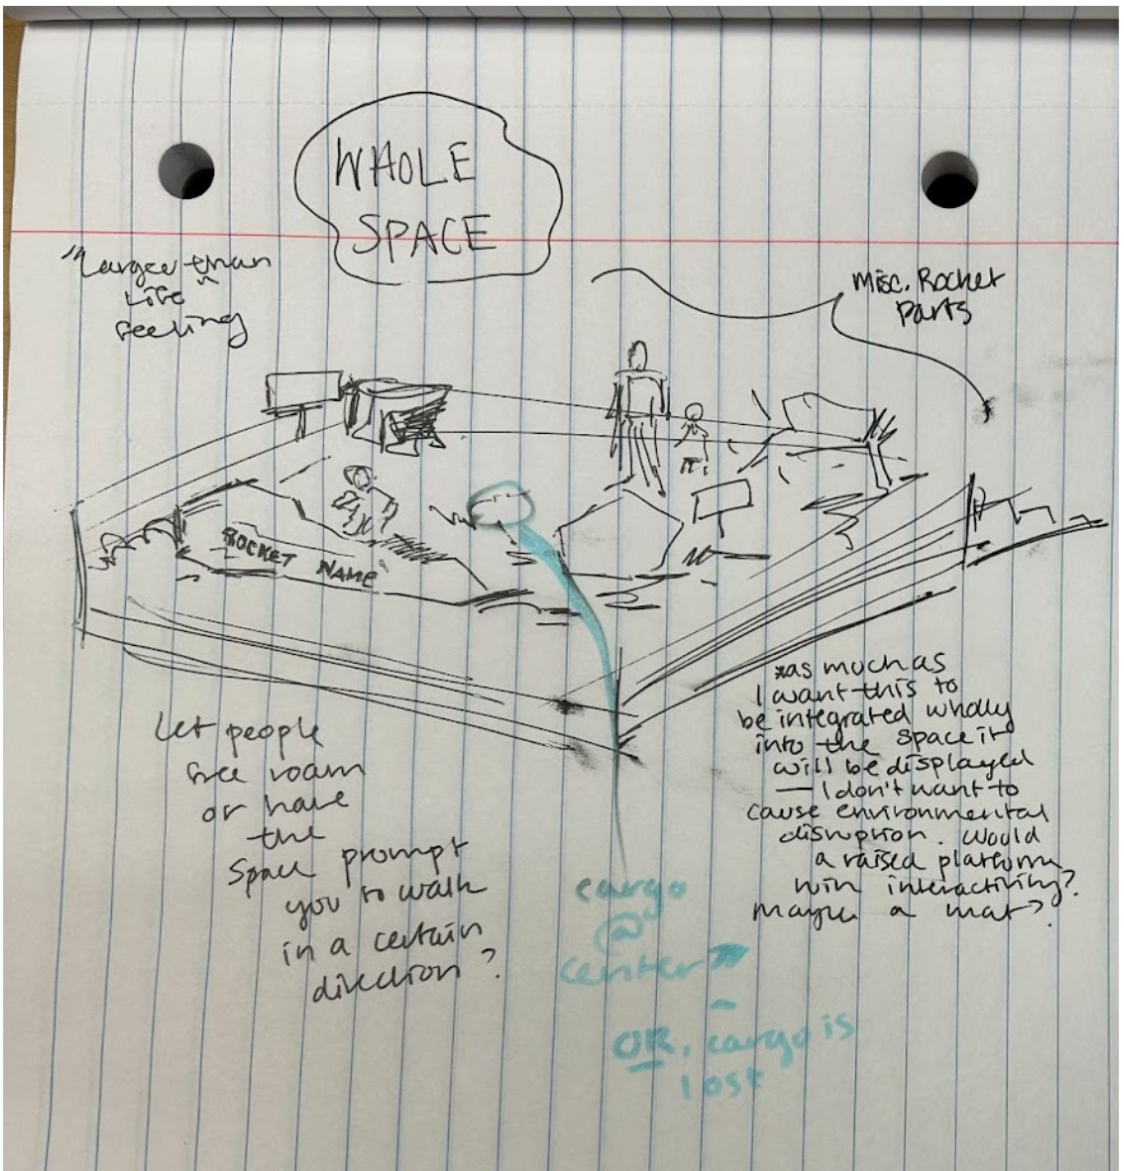 WHOLE
SPACE
"Larger than
Life"
feeling
Misc. Rocket
Parts
ROCKET NAME
Let people
free roam
or have
the
space prompt
you to walk
in a certain
direction?
*as much as
I want this to
be integrated wholly
into the space it
will be displayed
— I don't want to
cause environmental
disruption. Would
a raised platform
ruin interactivity?
Maybe a mat?
cargo
@
center
-
OR, cargo is
lost